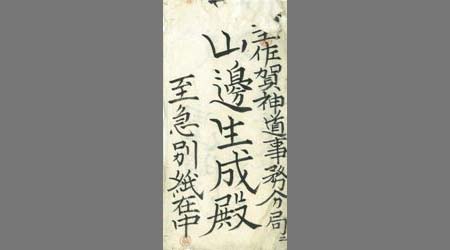 佐賀神道事務分局
山邊生成殿
至急別紙在中